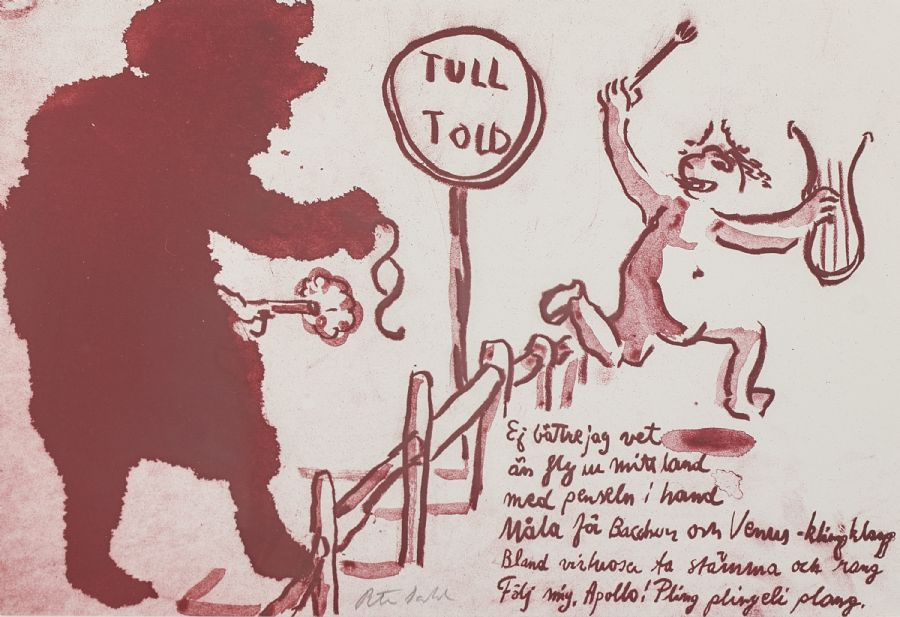 TULL
TOLD
Ej bättre jag vet
än fly ur mitt land
med penseln i hand
Måla för Bacchus och Venus - kling klang
Bland virtuoser ta stämma och rang
Följ mig, Apollo! Pling plingeli plang.